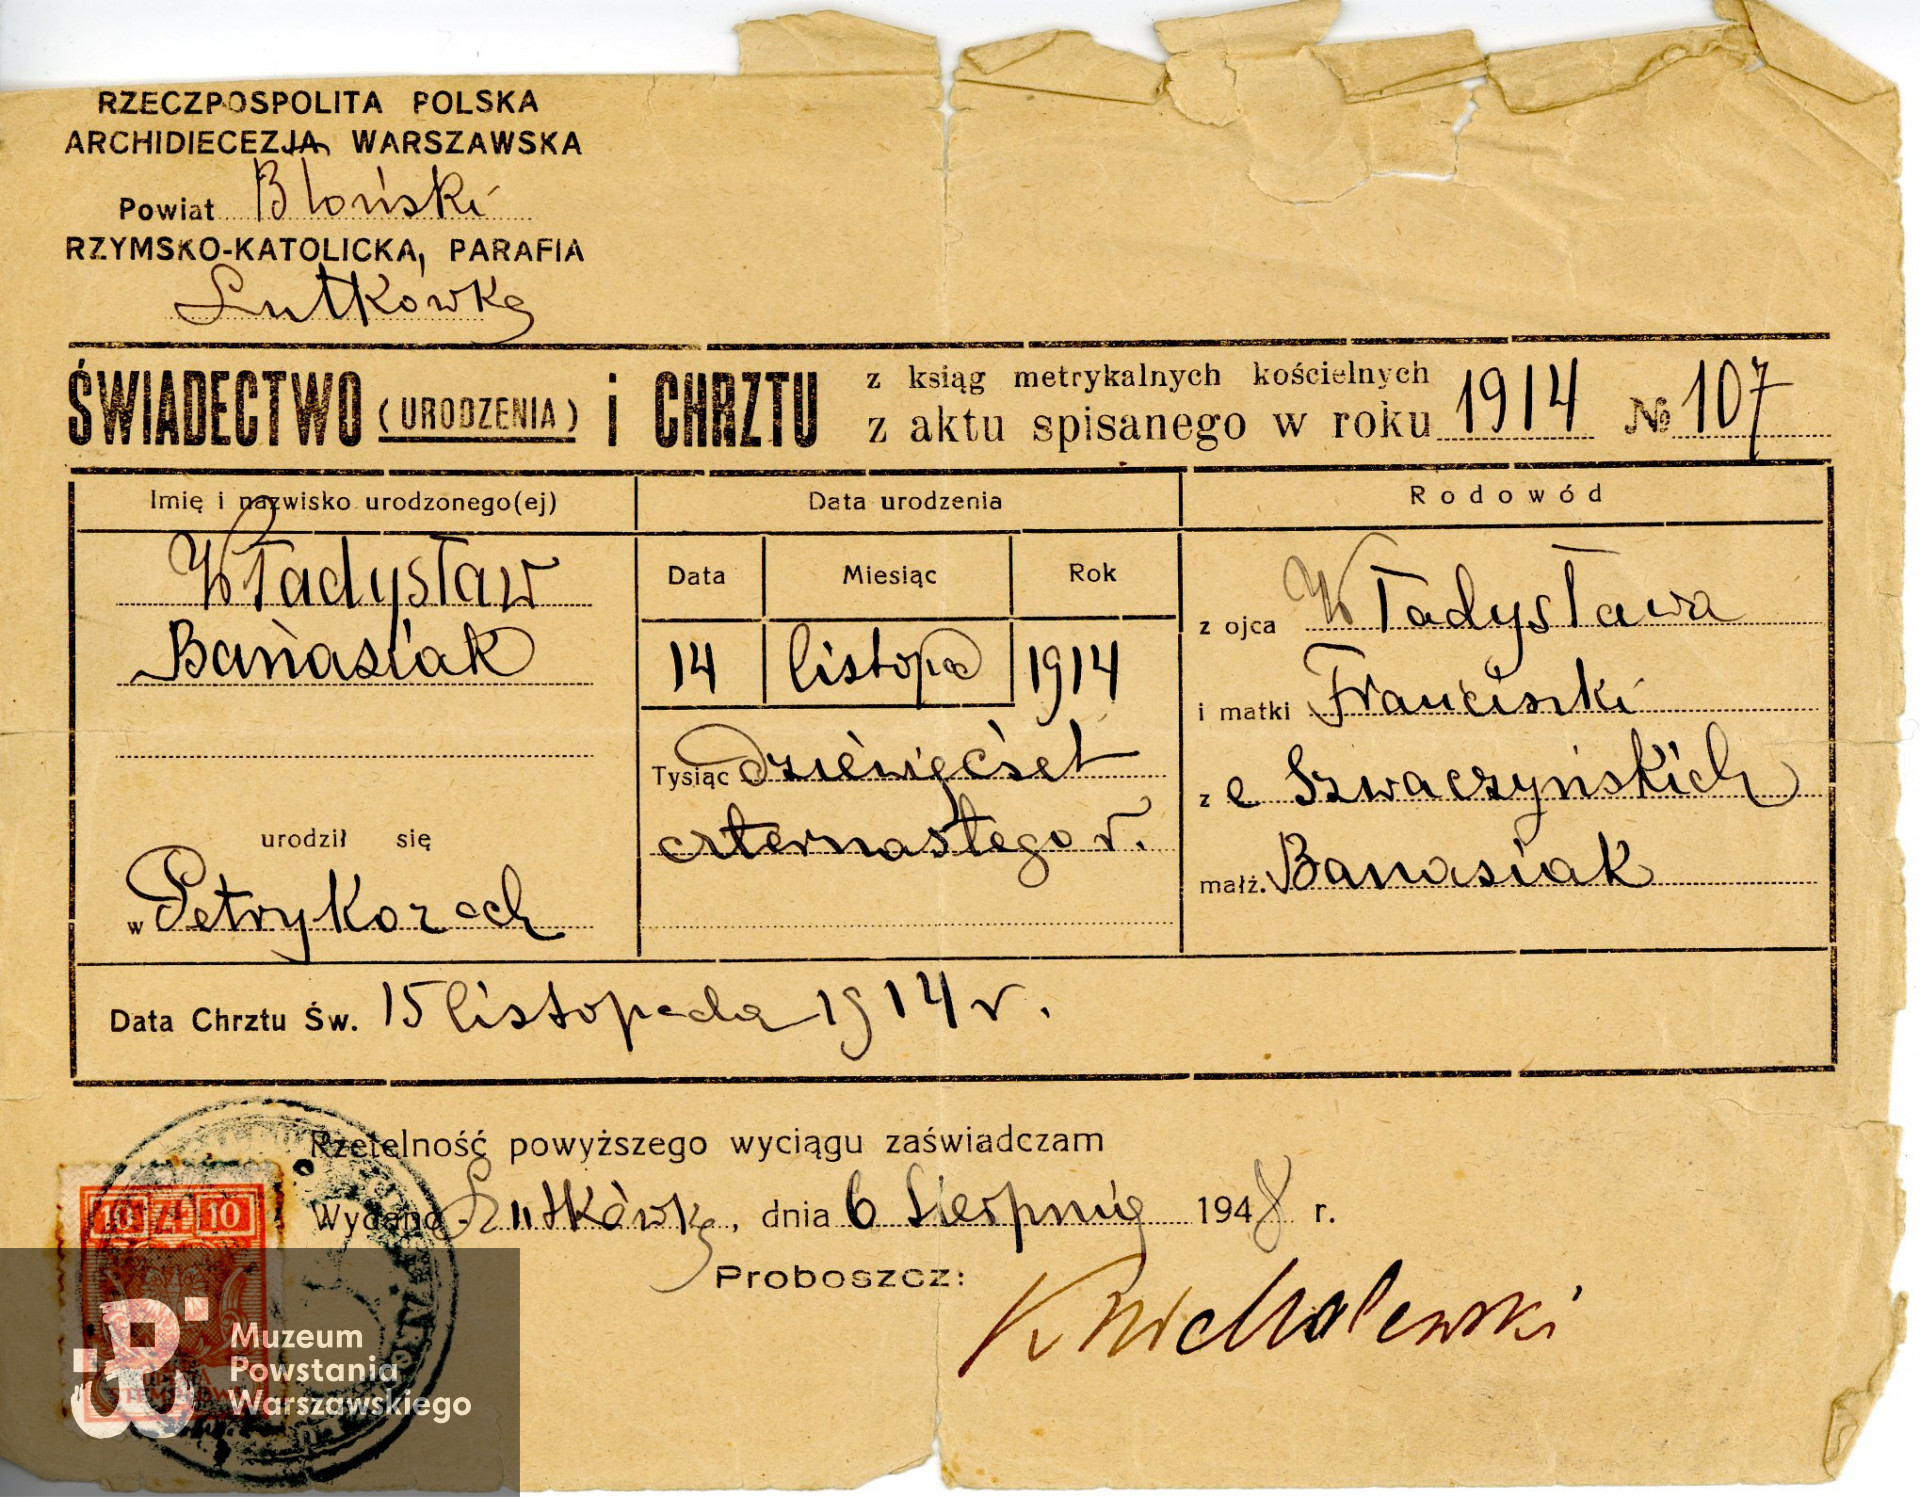 RZECZPOSPOLITA POLSKA
ARCHIDIECEZJA WARSZAWSKA
Powiat Błoński
RZYMSKO-KATOLICKA, PARAFIA
Lutkówka
ŚWIADECTWO (URODZENIA) i CHRZTU
z ksiąg metrykalnych kościelnych
z aktu spisanego w roku 1914 № 107
Imię i nazwisko urodzonego(ej)
Władysław
Banasiak
urodził się
w Petrykozach
Data urodzenia
Data Miesiąc Rok
14 listopa 1914
Tysiąc dziewięćset
czternastego r.
Rodowód
z ojca Władysława
i matki Franciszki
z e Szwaczyńskich
małż. Banasiak
Data Chrztu Św. 15 listopada 1914 r.
Rzetelność powyższego wyciągu zaświadczam
Wydano - Lutkówka, dnia 6 Sierpnia 1948 r.
Proboszcz:
10 ZŁ 10
Muzeum
Powstania
Warszawskiego